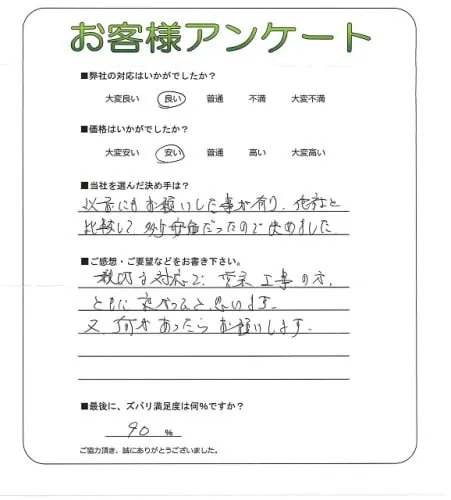 お客様アンケート
■弊社の対応はいかがでしたか？
大変良い 良い 普通 不満 大変不満
■価格はいかがでしたか？
大変安い 安い 普通 高い 大変高い
■当社を選んだ決め手は？
以前にもお願いした事が有り、他社と
比較して 安価だったので決めました。
■ご感想・ご要望などをお書き下さい。
親切な対応で、営業、工事の方、
ともに 良かったと思います。
又、何かあったらお願いします。
■最後に、ズバリ満足度は何%ですか？
90 %
ご協力頂き、誠にありがとうございました。